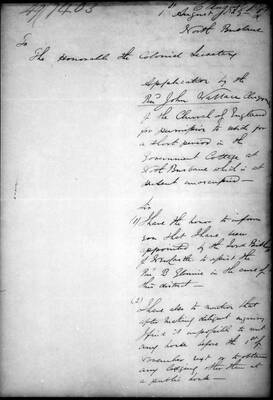 49/403
North Brisbane
To
The Honorable the Colonial Secretary
Application by the
Revd John Wallace
of the Church of England
for permission to reside for
a short period in the
Government Cottage at
North Brisbane which is at
present unoccupied —
Sir
(1) I have the honor to inform
you that I have been
appointed by the Lord Bishop
of Newcastle to assist the
Revd B Glennie in the cure of
this district —
(2) I have also to mention that
after making diligent inquiries
I find it impossible to rent
any house before the 1st of
November next or to obtain
any lodging other than at
a public house —